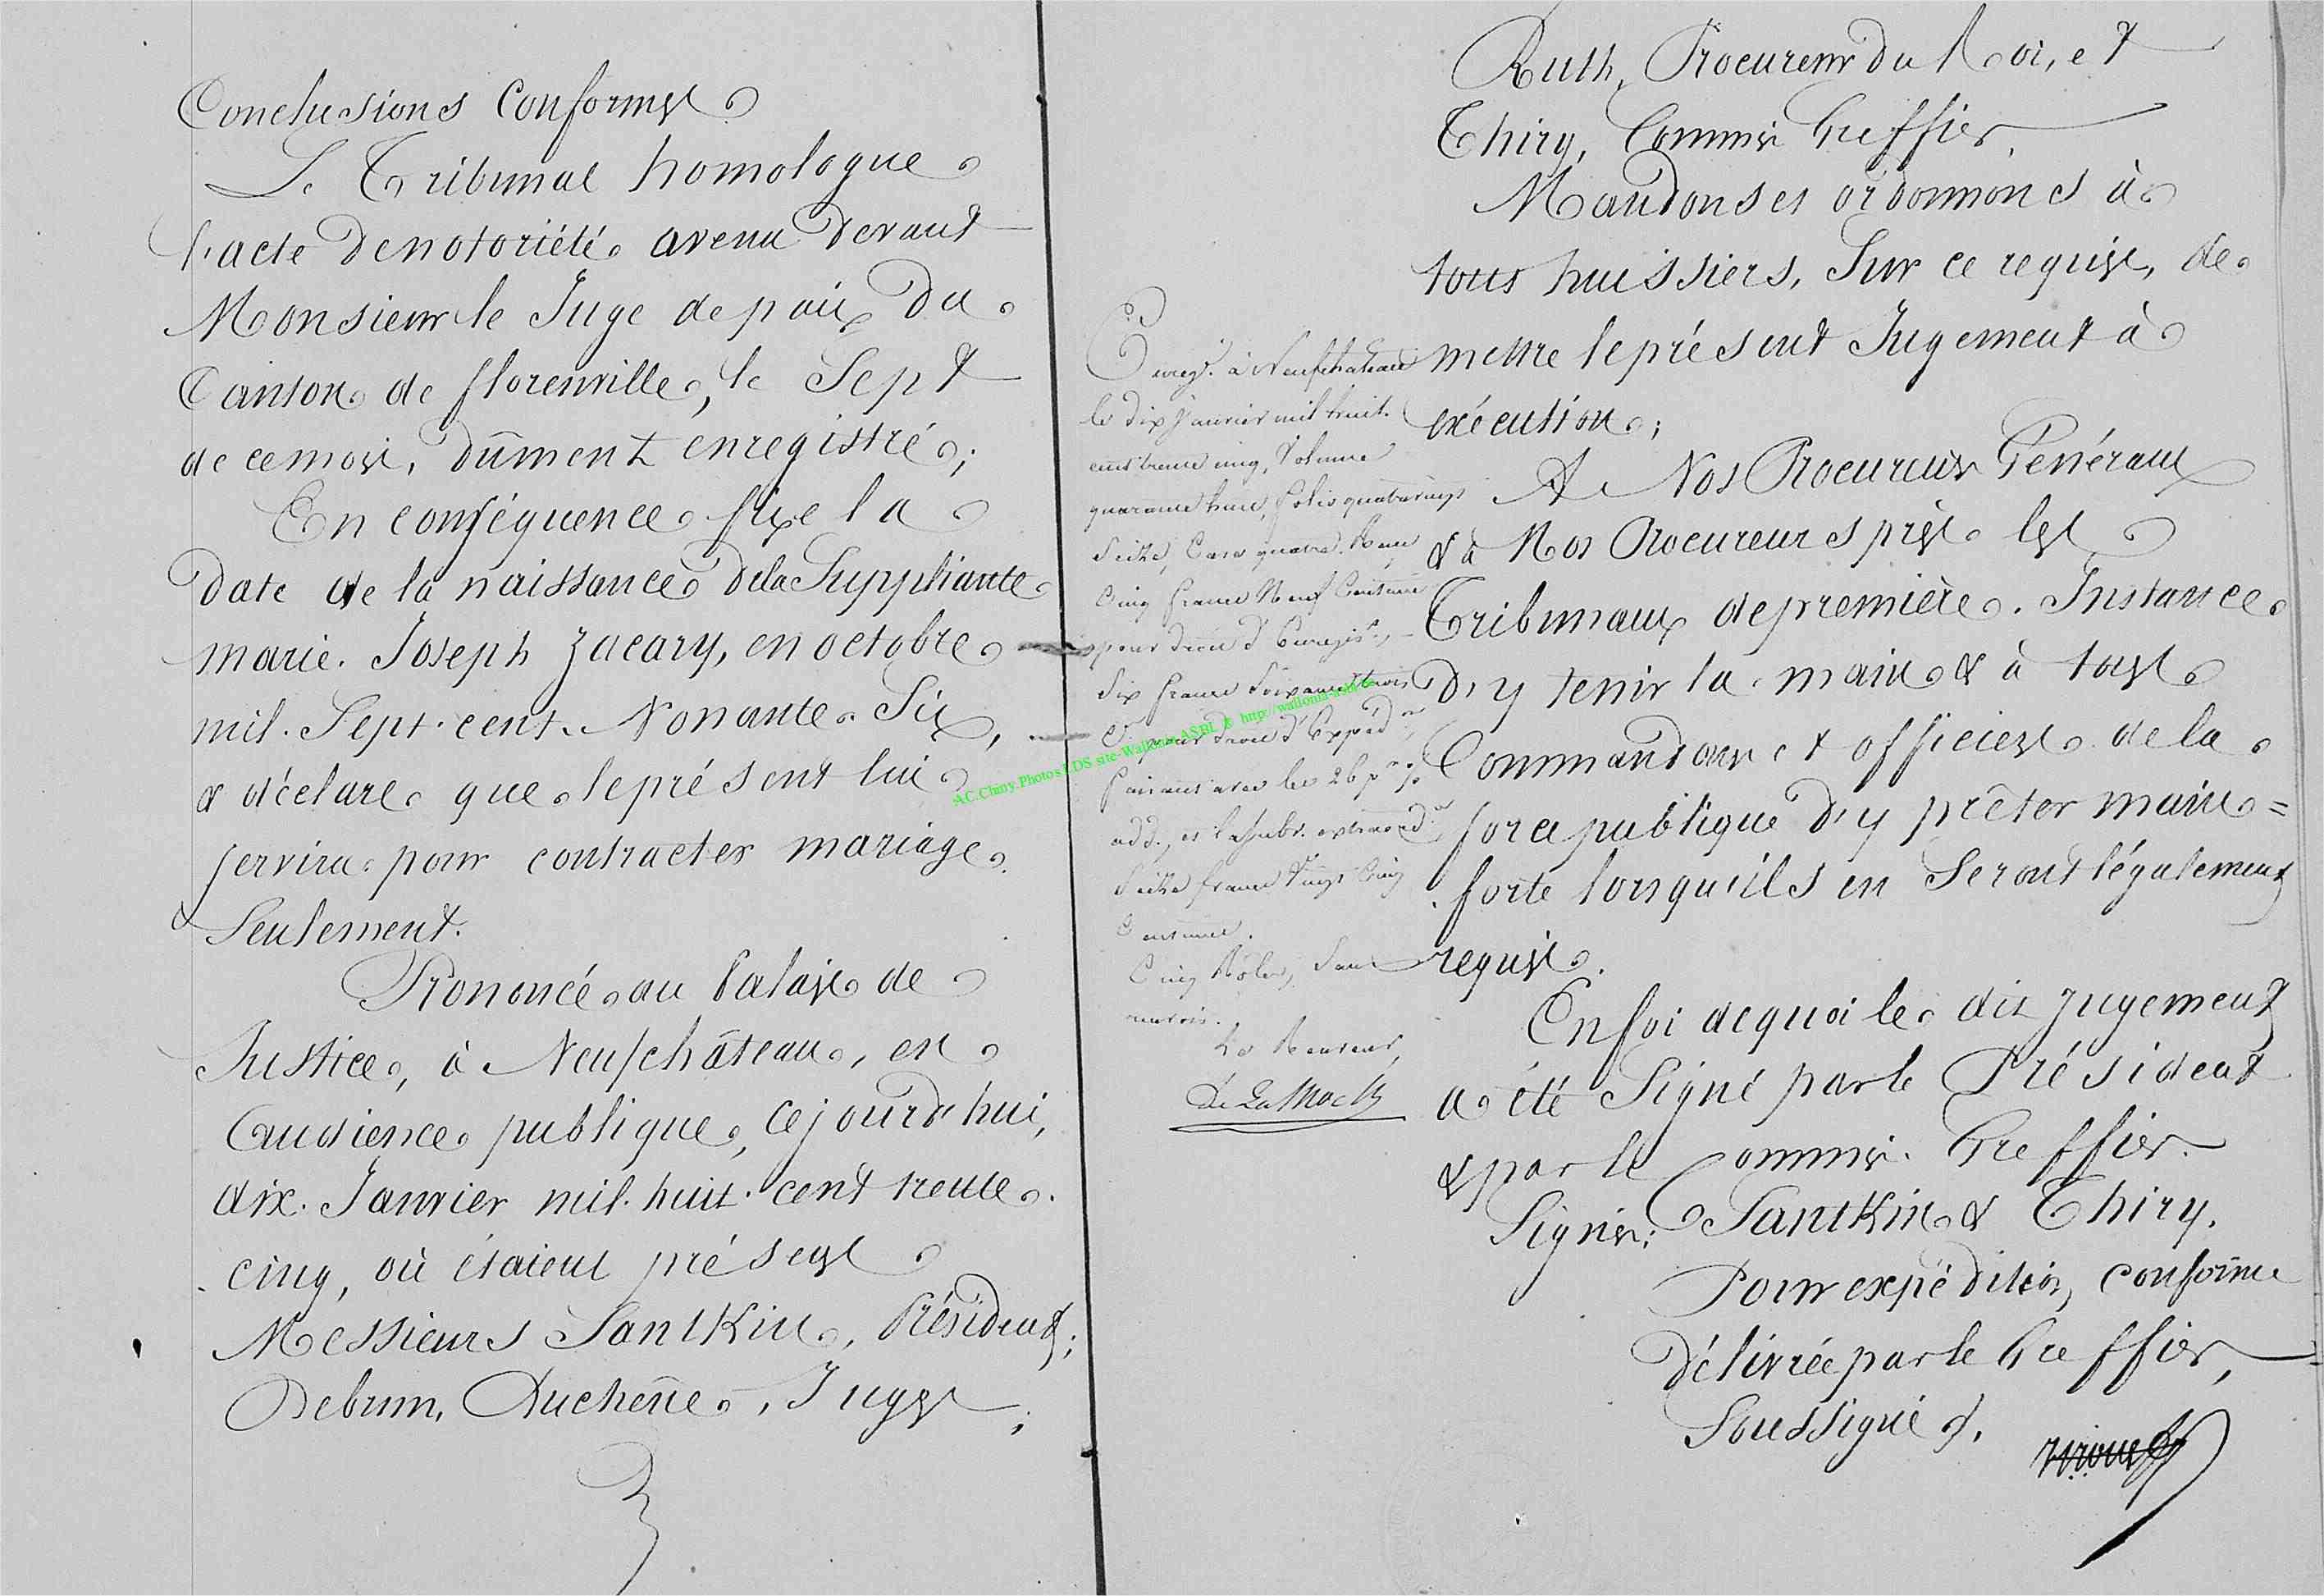 Conclusions Conformes
Le Tribunal homologue
l'acte de notoriété avenu devant
Monsieur le Juge de paix du
Canton de florenville, le Sept
de ce mois, dûment enregistré;
En conséquence fixe la
date de la naissance de la Suppliante
marie. Joseph Zacary, en octobre
mil. Sept. cent. Nonante. Six,
& déclare que le présent lui
servira pour contracter mariage
Seulement.
Prononcé au Palais de
Justice, à Neufchâteau, en
audience publique, ce jourd'hui,
dix. Janvier mil. huit. cent trente.
cinq, où étaient présens
Messieurs Santkin, Président;
Debrun, Duchene, Juges;
Ruth, Procureur du Roi, et
Thiry, Commis Greffier.
Mandons et ordonnons à
tous huissiers, Sur ce requis, de
mettre le présent Jugement à
exécution;
A Nos Procureurs Généraux
& à Nos Procureurs près les
Tribunaux de première Instance
d'y tenir la main & à tous
Commandans et officiers de la
force publique d'y prêter main=
forte lorsqu'ils en Seront légalement
requis.
En foi de quoi le dit jugement
a été Signé par le Président
& par le Commis. Greffier.
Signés: Santkin & Thiry.
Pour expédition, conforme
délivrée par le Greffier,
Soussigné.
Enreg. à Neufchateau
le dix Janvier mil huit.
cent trente cinq, Volume
quarante huit, folio quatrevingt
Seize, Case quatre. Reçu
Cinq francs Neuf Centimes
pour droit d'Enregis.,
Six francs Soixante trois
C. pour droit d'Expéd.
faisant avec les 26 p.%
add., et la subv. extraord.
Seize francs Vingt Cinq
Centimes.
Cinq Rôles, Sans
renvois.
Le Receveur,
AC.Chiny.Photos LDS site-Wallonia ASBL © http://wallonia-asbl.be